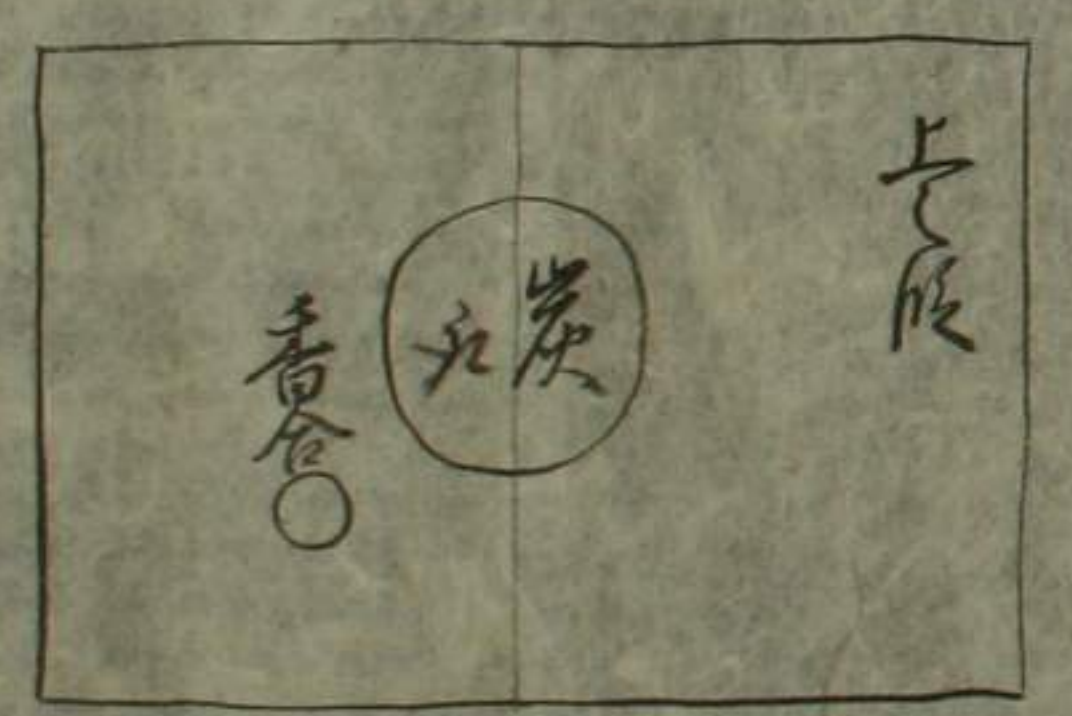 上之段
炭
香合